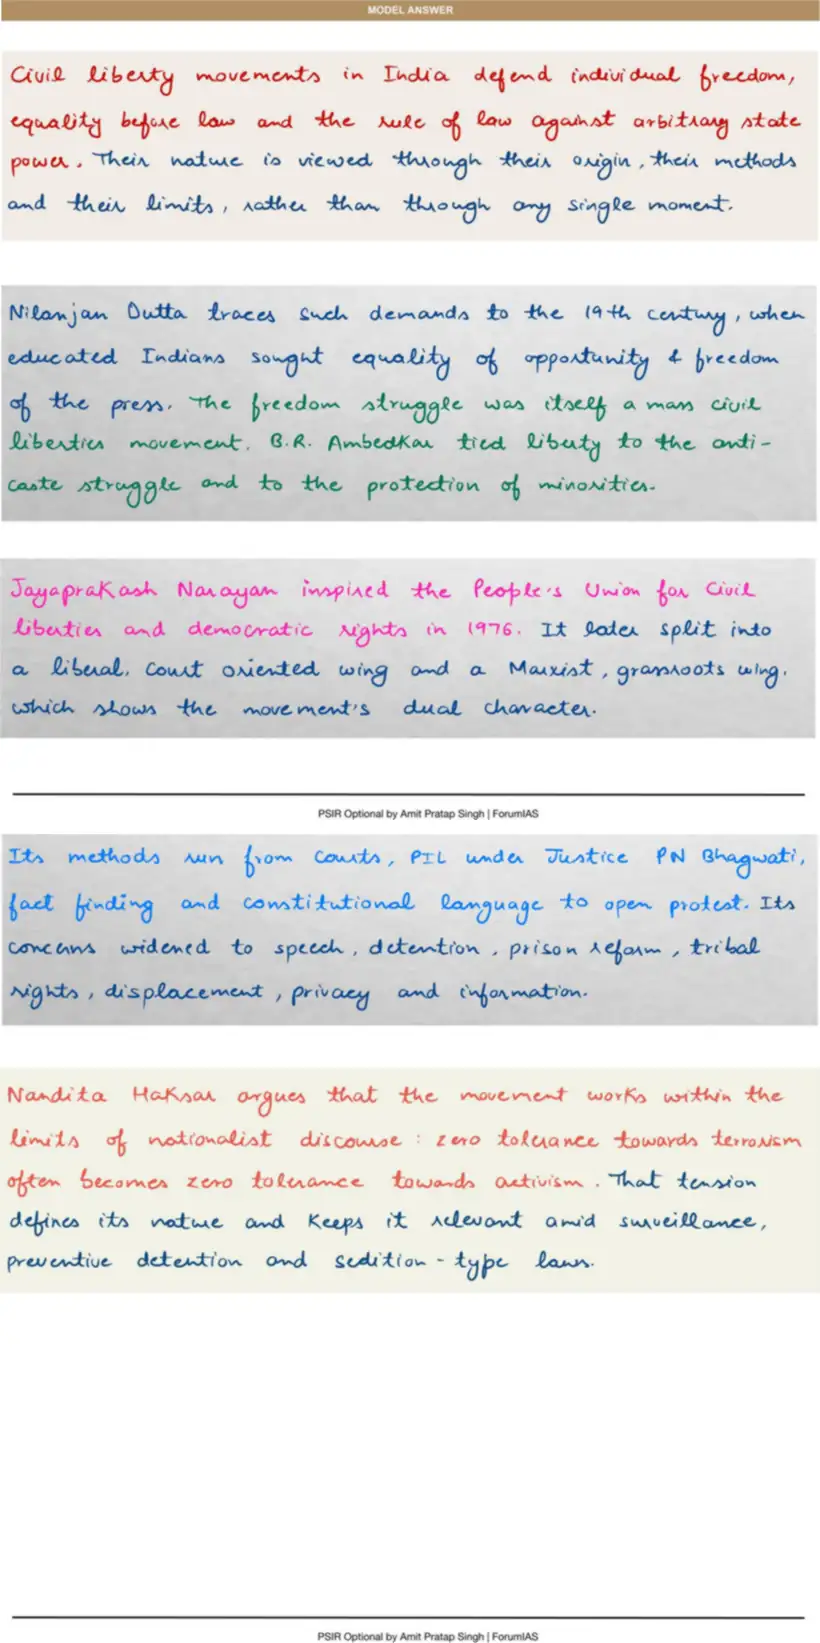 MODEL ANSWER
Civil liberty movements in India defend individual freedom,
equality before law and the rule of law against arbitrary state
power. Their nature is viewed through their origin, their methods
and their limits, rather than through any single moment.
Nilanjan Dutta traces such demands to the 19th century, when
educated Indians sought equality of opportunity & freedom
of the press. The freedom struggle was itself a mass civil
liberties movement. B.R. Ambedkar tied liberty to the anti-
caste struggle and to the protection of minorities.
Jayaprakash Narayan inspired the People's Union for Civil
liberties and democratic rights in 1976. It later split into
a liberal, court oriented wing and a Marxist, grassroots wing.
which shows the movement's dual character.
PSIR Optional by Amit Pratap Singh | ForumIAS
Its methods run from courts, PIL under Justice PN Bhagwati,
fact finding and constitutional language to open protest. Its
concerns widened to speech, detention, prison reform, tribal
rights, displacement, privacy and information.
Nandita Haksar argues that the movement works within the
limits of nationalist discourse: zero tolerance towards terrorism
often becomes zero tolerance towards activism. That tension
defines its nature and keeps it relevant amid surveillance,
preventive detention and sedition-type laws.
PSIR Optional by Amit Pratap Singh | ForumIAS